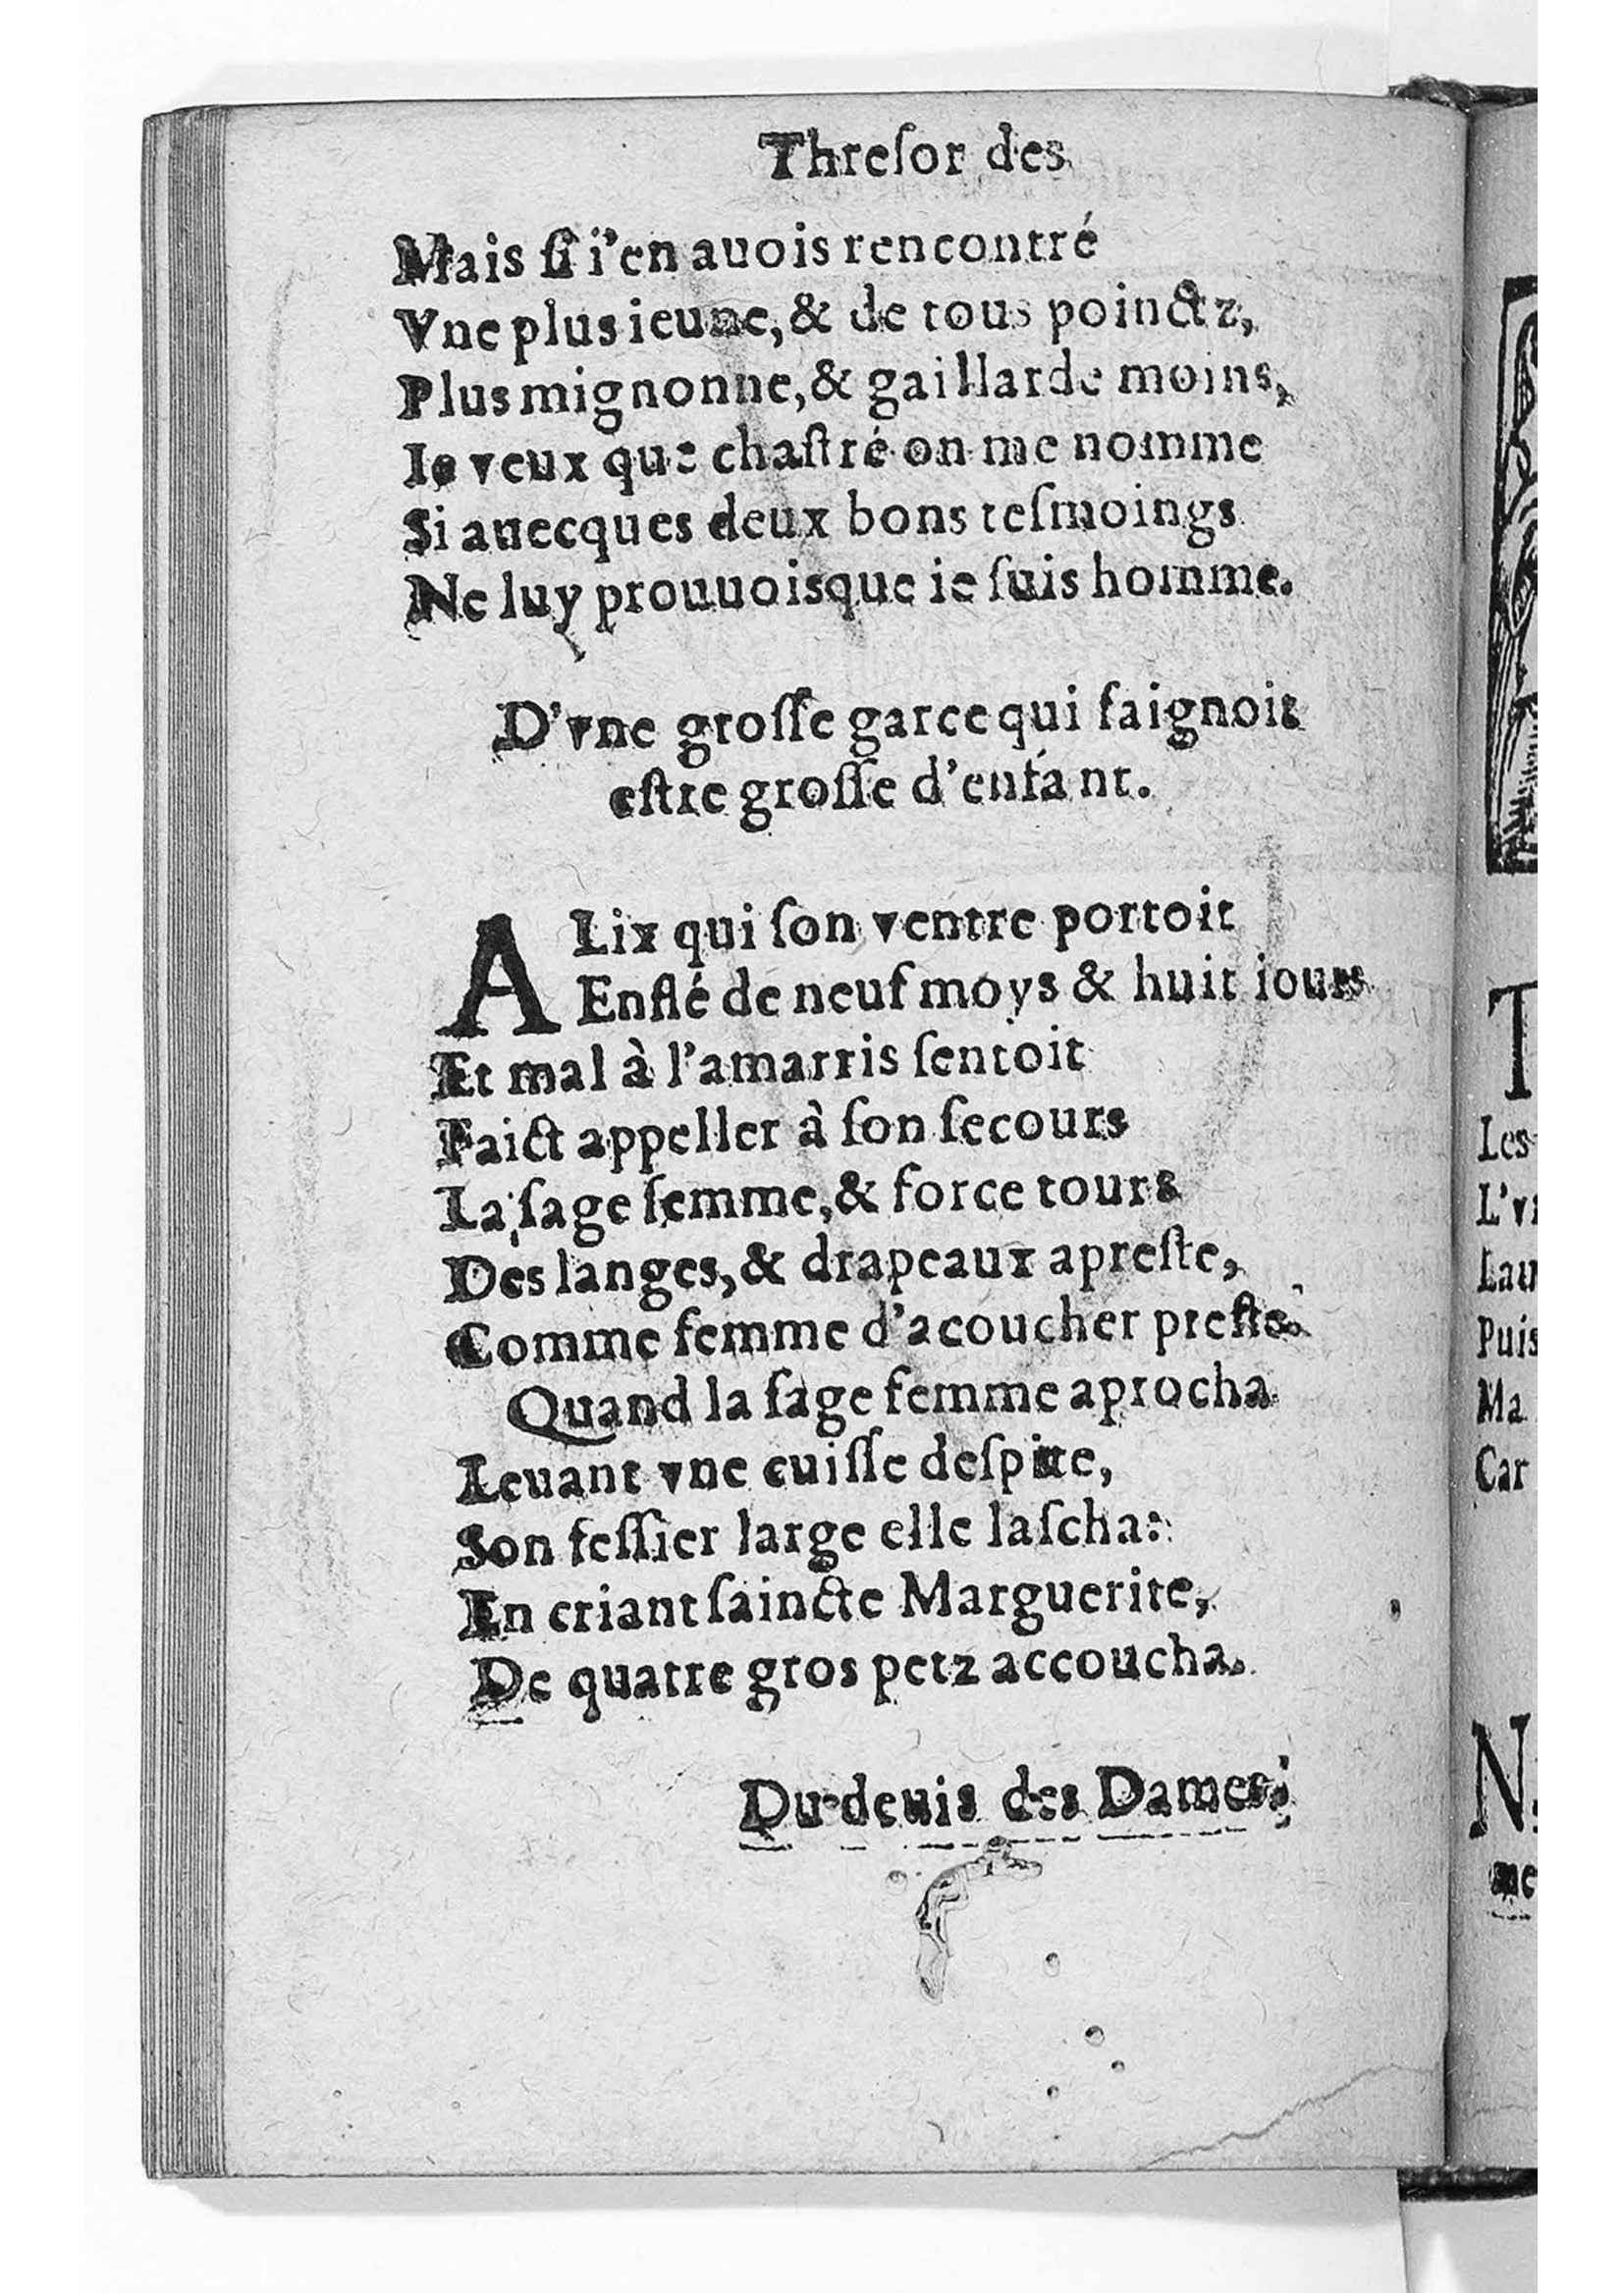 Threſor des
Mais ſi i'en auois rencontré
Vne plus ieune, & de tous poinctz,
Plus mignonne, & gaillarde moins,
Ie veux que chaſtré on me nomme
Si auecques deux bons teſmoings
Ne luy prouuois que ie ſuis homme.
D'vne groſſe garce qui faignoit
eſtre groſſe d'enfant.
ALix qui ſon ventre portoit
Enflé de neuf moys & huit iours
Et mal à l'amarris ſentoit
Faict appeller à ſon ſecours
La ſage femme, & force tours
Des langes, & drapeaux apreſte,
Comme femme d'acoucher preſte.
Quand la ſage femme aprocha
Leuant vne cuiſſe deſpite,
Son feſſier large elle laſcha:
En criant ſaincte Marguerite,
De quatre gros petz accoucha.
Du deuis des Dames;
T
Les
L'vi
Lau
Puis
Ma
Car
N
me